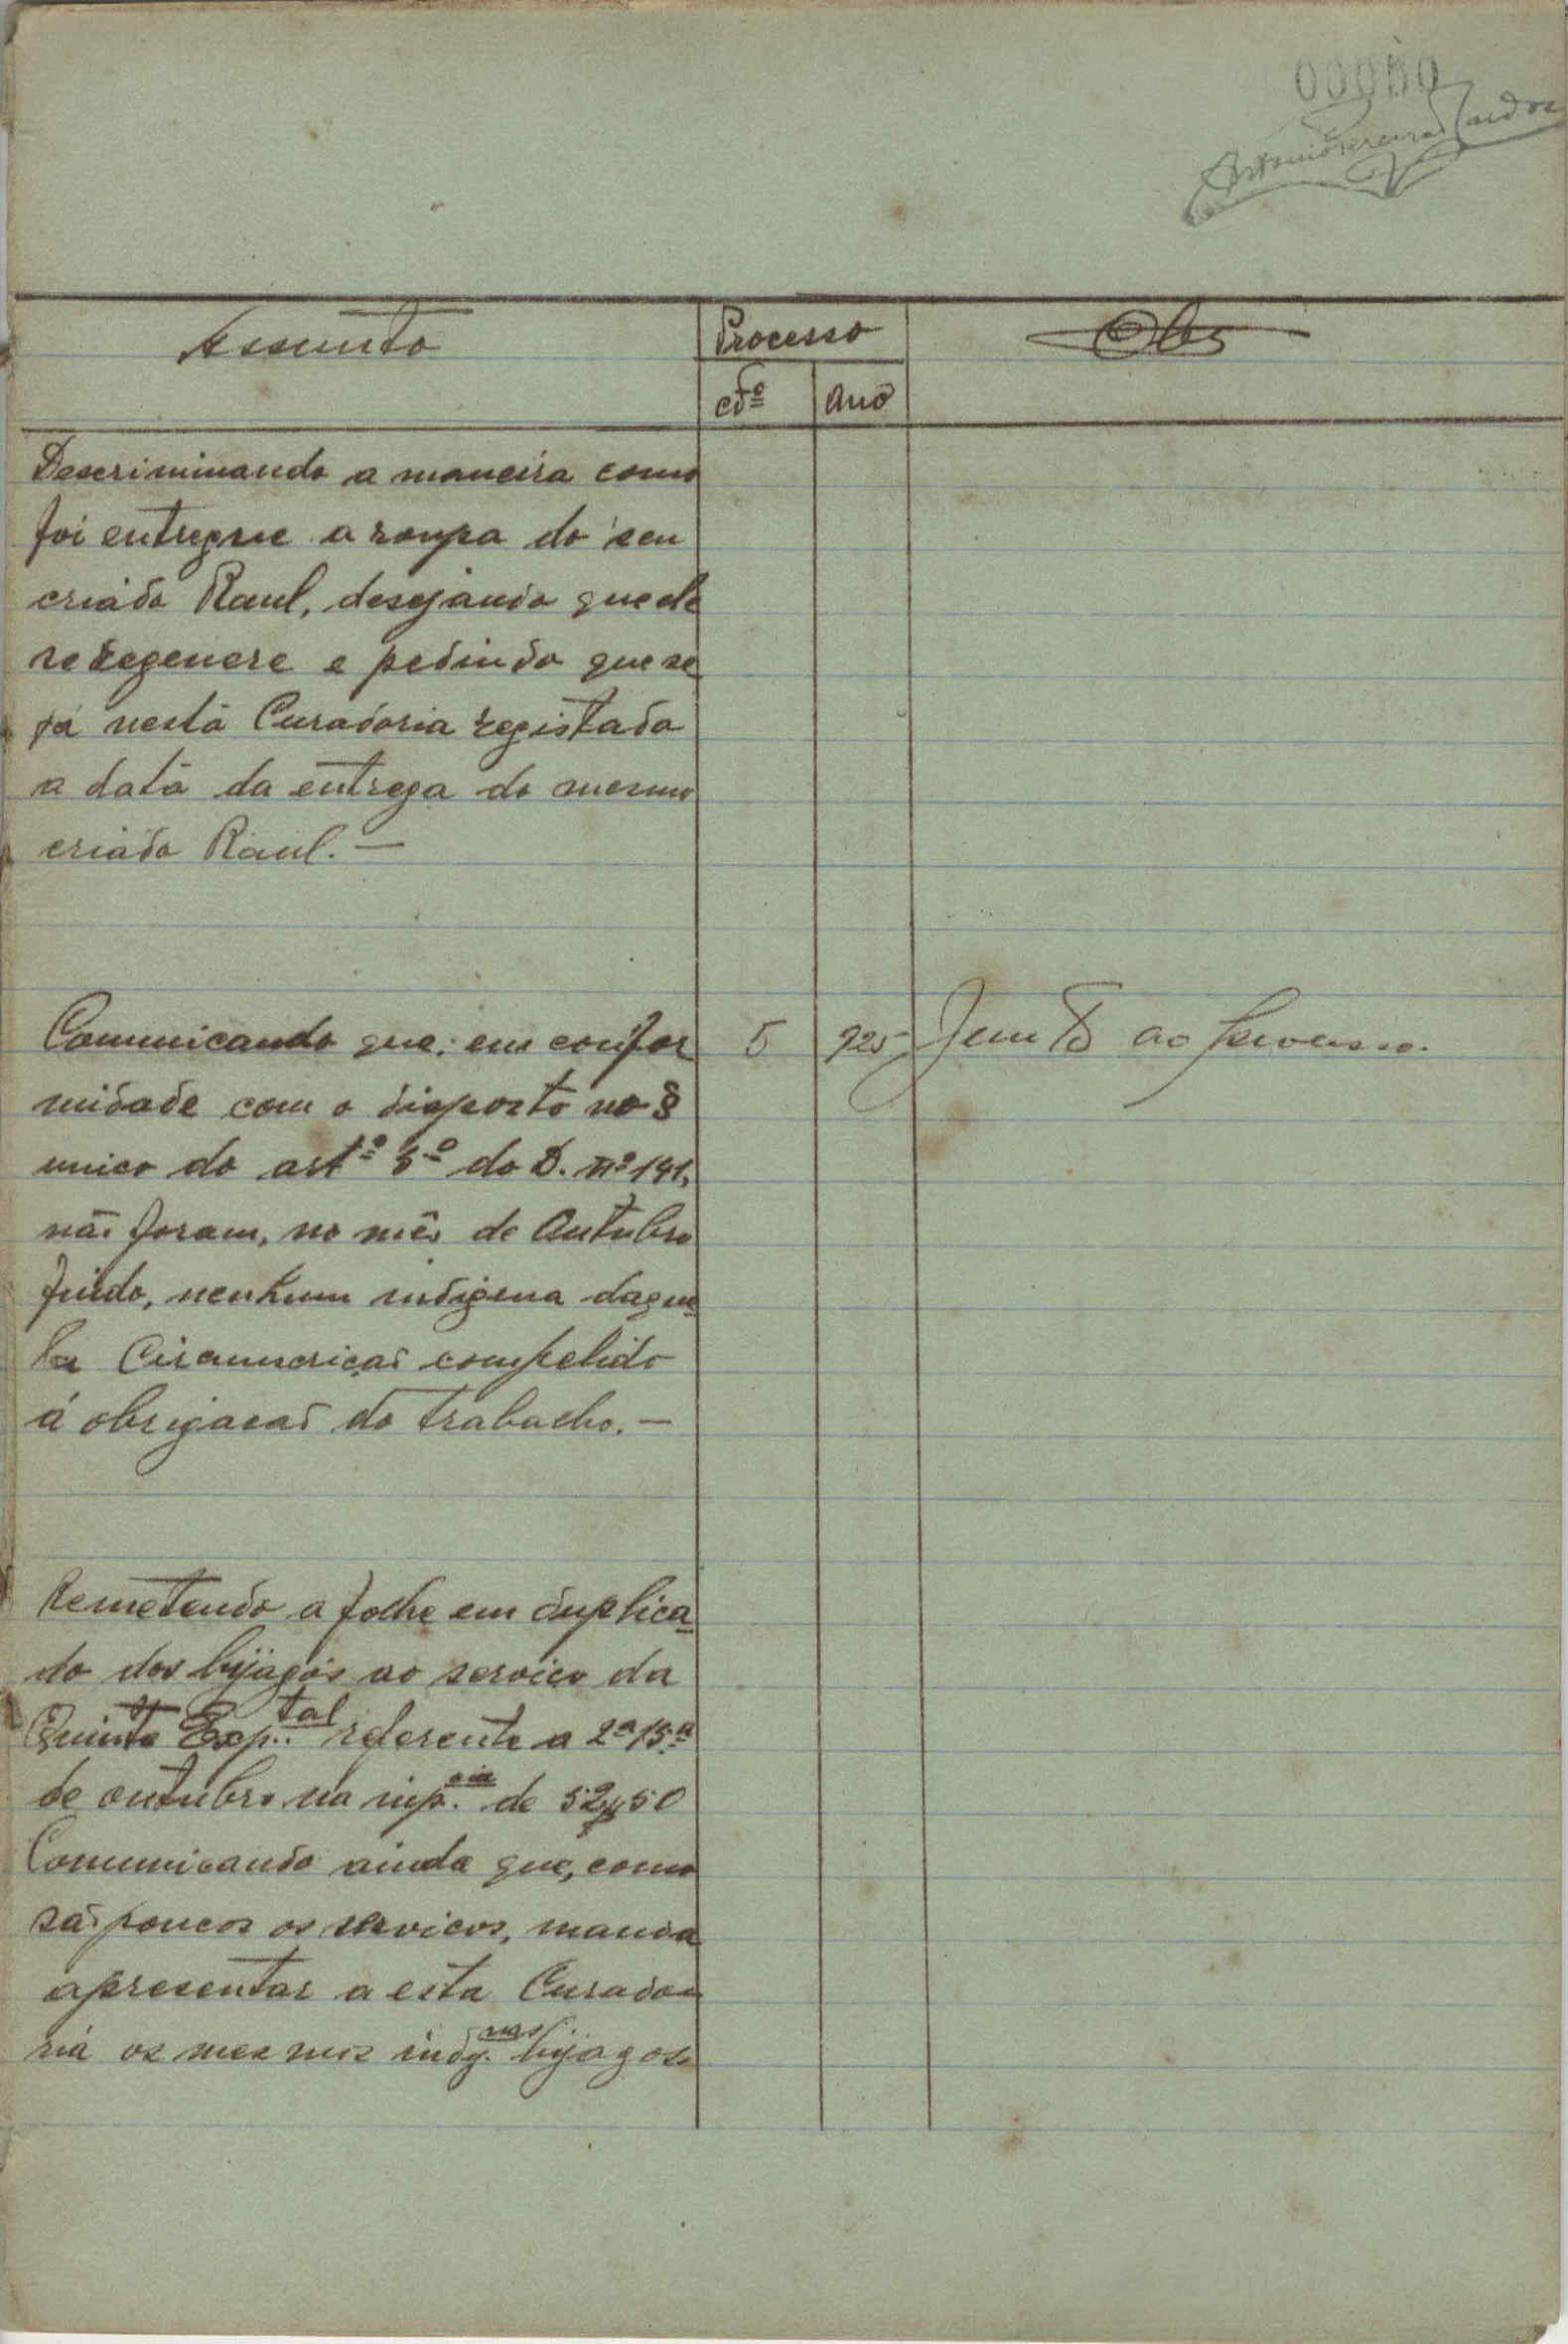 Antonio Pereira Cardoso
Assunto
Processo
Obs
Nº
Ano
Descriminando a maneira como
foi entregue a roupa do seu
criádo Raul, desejando que ele
se regenere e pedindo que se
já nesta Curadoria registado
a data da entrega do mesmo
criádo Raul. —
Comunicando que; em confor
5
925
Junto ao processo.
midade com o disposto no §
unico do artº 3º do D. nº 141,
não foram, no mês de Outubro
findo, nenhum indigena daque
la Circunscrição compelido
á obrigacão do trabalho. —
Remetendo a folha em duplica
do dos bijagós ao serviço da
Quinta Exp.tal referente a 2ª 15.ª
de outubro na imp.cia de 52$50
Comunicando ainda que, como
são poucos os servicos, manda
apresentar a esta Curado
ria os mesmos indg.nas bijagos.